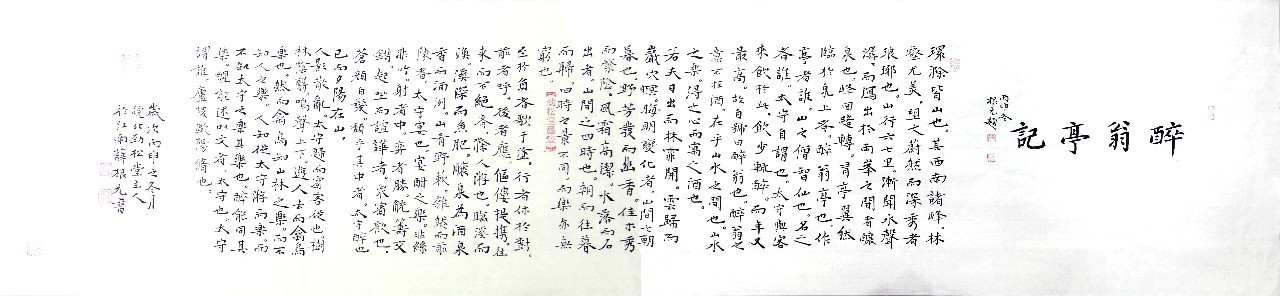 醉翁亭記
環滁皆山也。其西南諸峰，林
壑尤美，望之蔚然而深秀者
琅琊也。山行六七里，漸聞水聲
潺潺而瀉出於兩峯之間者釀
泉也。峰回路轉，有亭翼然
臨於泉上者，醉翁亭也。作
亭者誰。山之僧智仙也。名之
者誰。太守自謂也。太守與客
來飲於此，飲少輒醉，而年又
最高，故自號曰醉翁也。醉翁之
意不在酒，在乎山水之間也。山水
之樂，得之心而寓之酒也。
若夫日出而林霏開，雲歸而
巖穴暝，晦明變化者，山間之朝
暮也。野芳發而幽香，佳木秀
而繁陰，風霜高潔，水落而石
出者，山間之四時也。朝而往，暮
而歸，四時之景不同，而樂亦無
窮也。
至於負者歌于塗，行者休於樹，
前者呼，後者應，傴僂提攜，往
來而不絕者，滁人遊也。臨溪而
漁，溪深而魚肥，釀泉為酒，泉
香而酒洌，山肴野蔌，雜然而前
陳者，太守宴也。宴酣之樂，非絲
非竹，射者中，弈者勝，觥籌交
錯，起坐而諠譁者，衆賓歡也。
蒼顏白髮，頹乎其中者，太守醉也
已而夕陽在山，
人影散亂，太守歸而賓客從也。樹
林陰翳，鳴聲上下，遊人去而禽鳥
樂也。然而禽鳥知山林之樂，而不
知人之樂，人知從太守遊而樂，而
不知太守之樂其樂也。醉能同其
樂，醒能述以文者，太守也。太守
謂誰。廬陵歐陽脩也。
歲次丙申之冬月
皖北勁松堂主人
於江南薛根元書